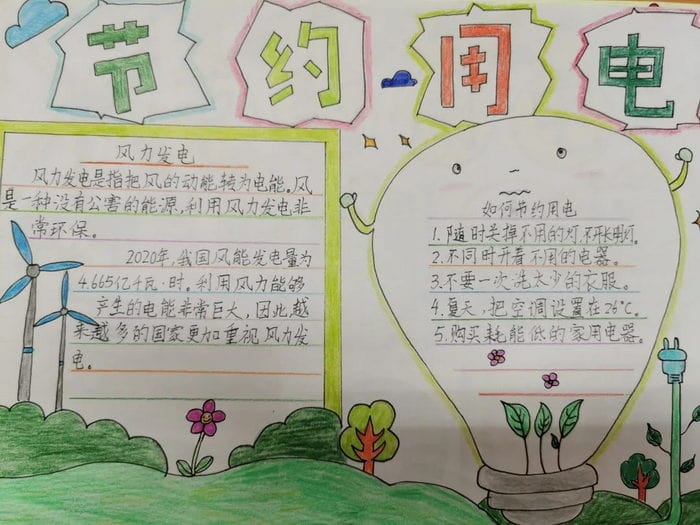 节约用电
风力发电
风力发电是指把风的动能转为电能。风
是一种没有公害的能源,利用风力发电非
常环保。
2020年,我国风能发电量为
4.665亿千瓦·时。利用风力能够
产生的电能非常巨大,因此越
来越多的国家更加重视风力发
电。
如何节约用电
1.随时关掉不用的灯,不开长明灯。
2.不同时开着不用的电器。
3.不要一次洗太少的衣服。
4.夏天,把空调设置在26°C。
5.购买耗能低的家用电器。